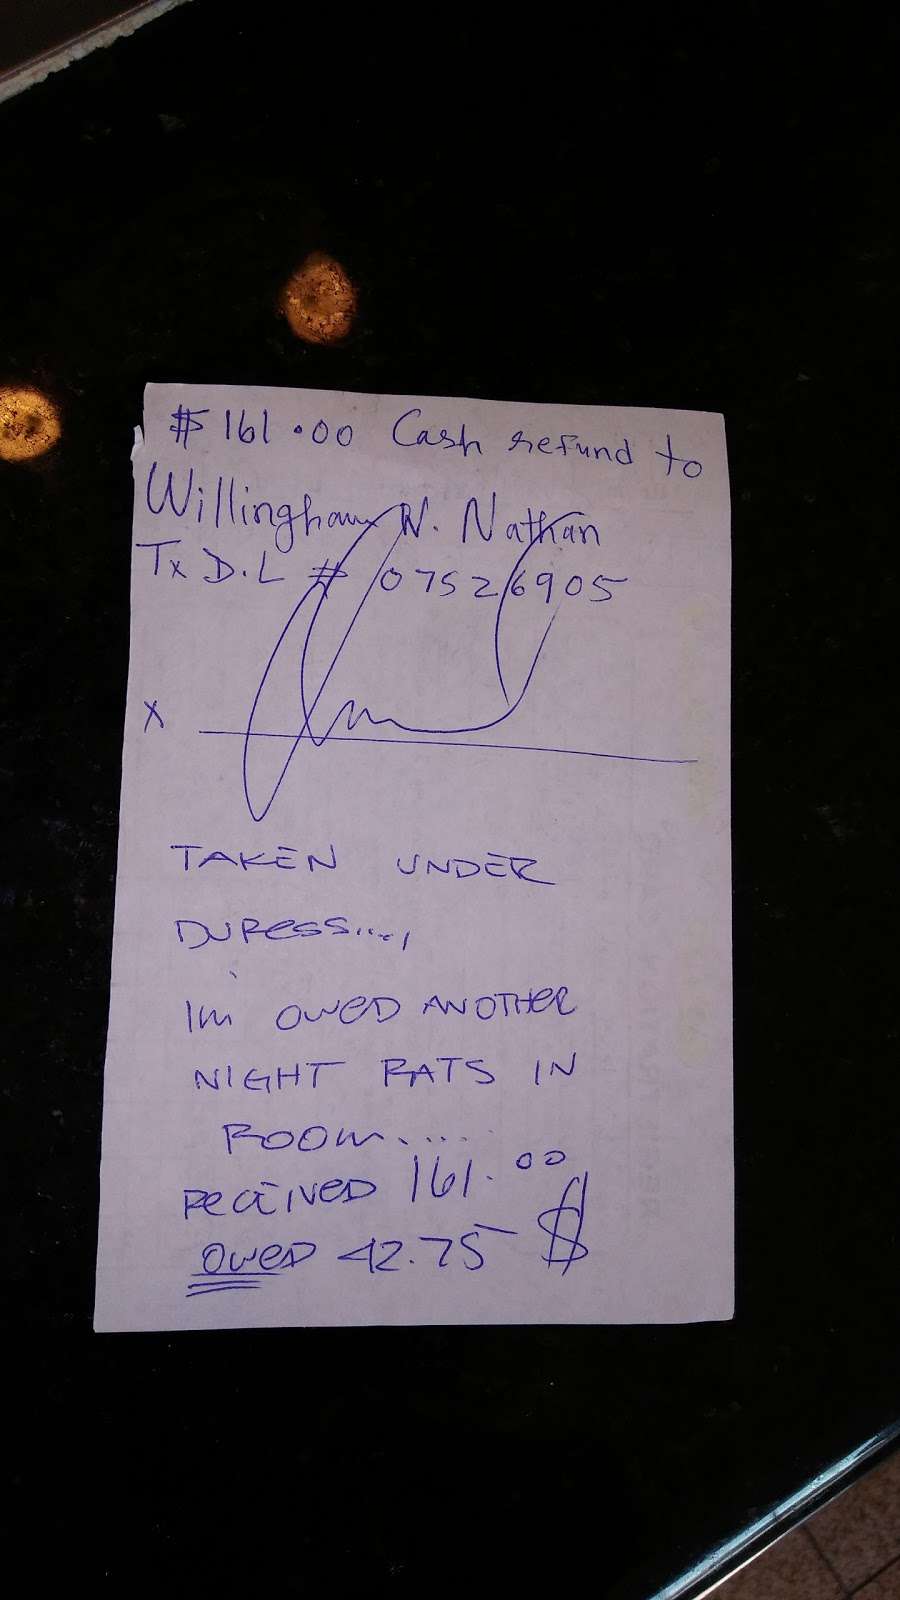 $161.00 Cash refund to
Willingham N. Nathan
Tx D.L # 07526905
x
TAKEN UNDER
DURESS....,
IM OWED ANOTHER
NIGHT RATS IN
ROOM.....
RECEIVED 161.00
OWED 42.75 $